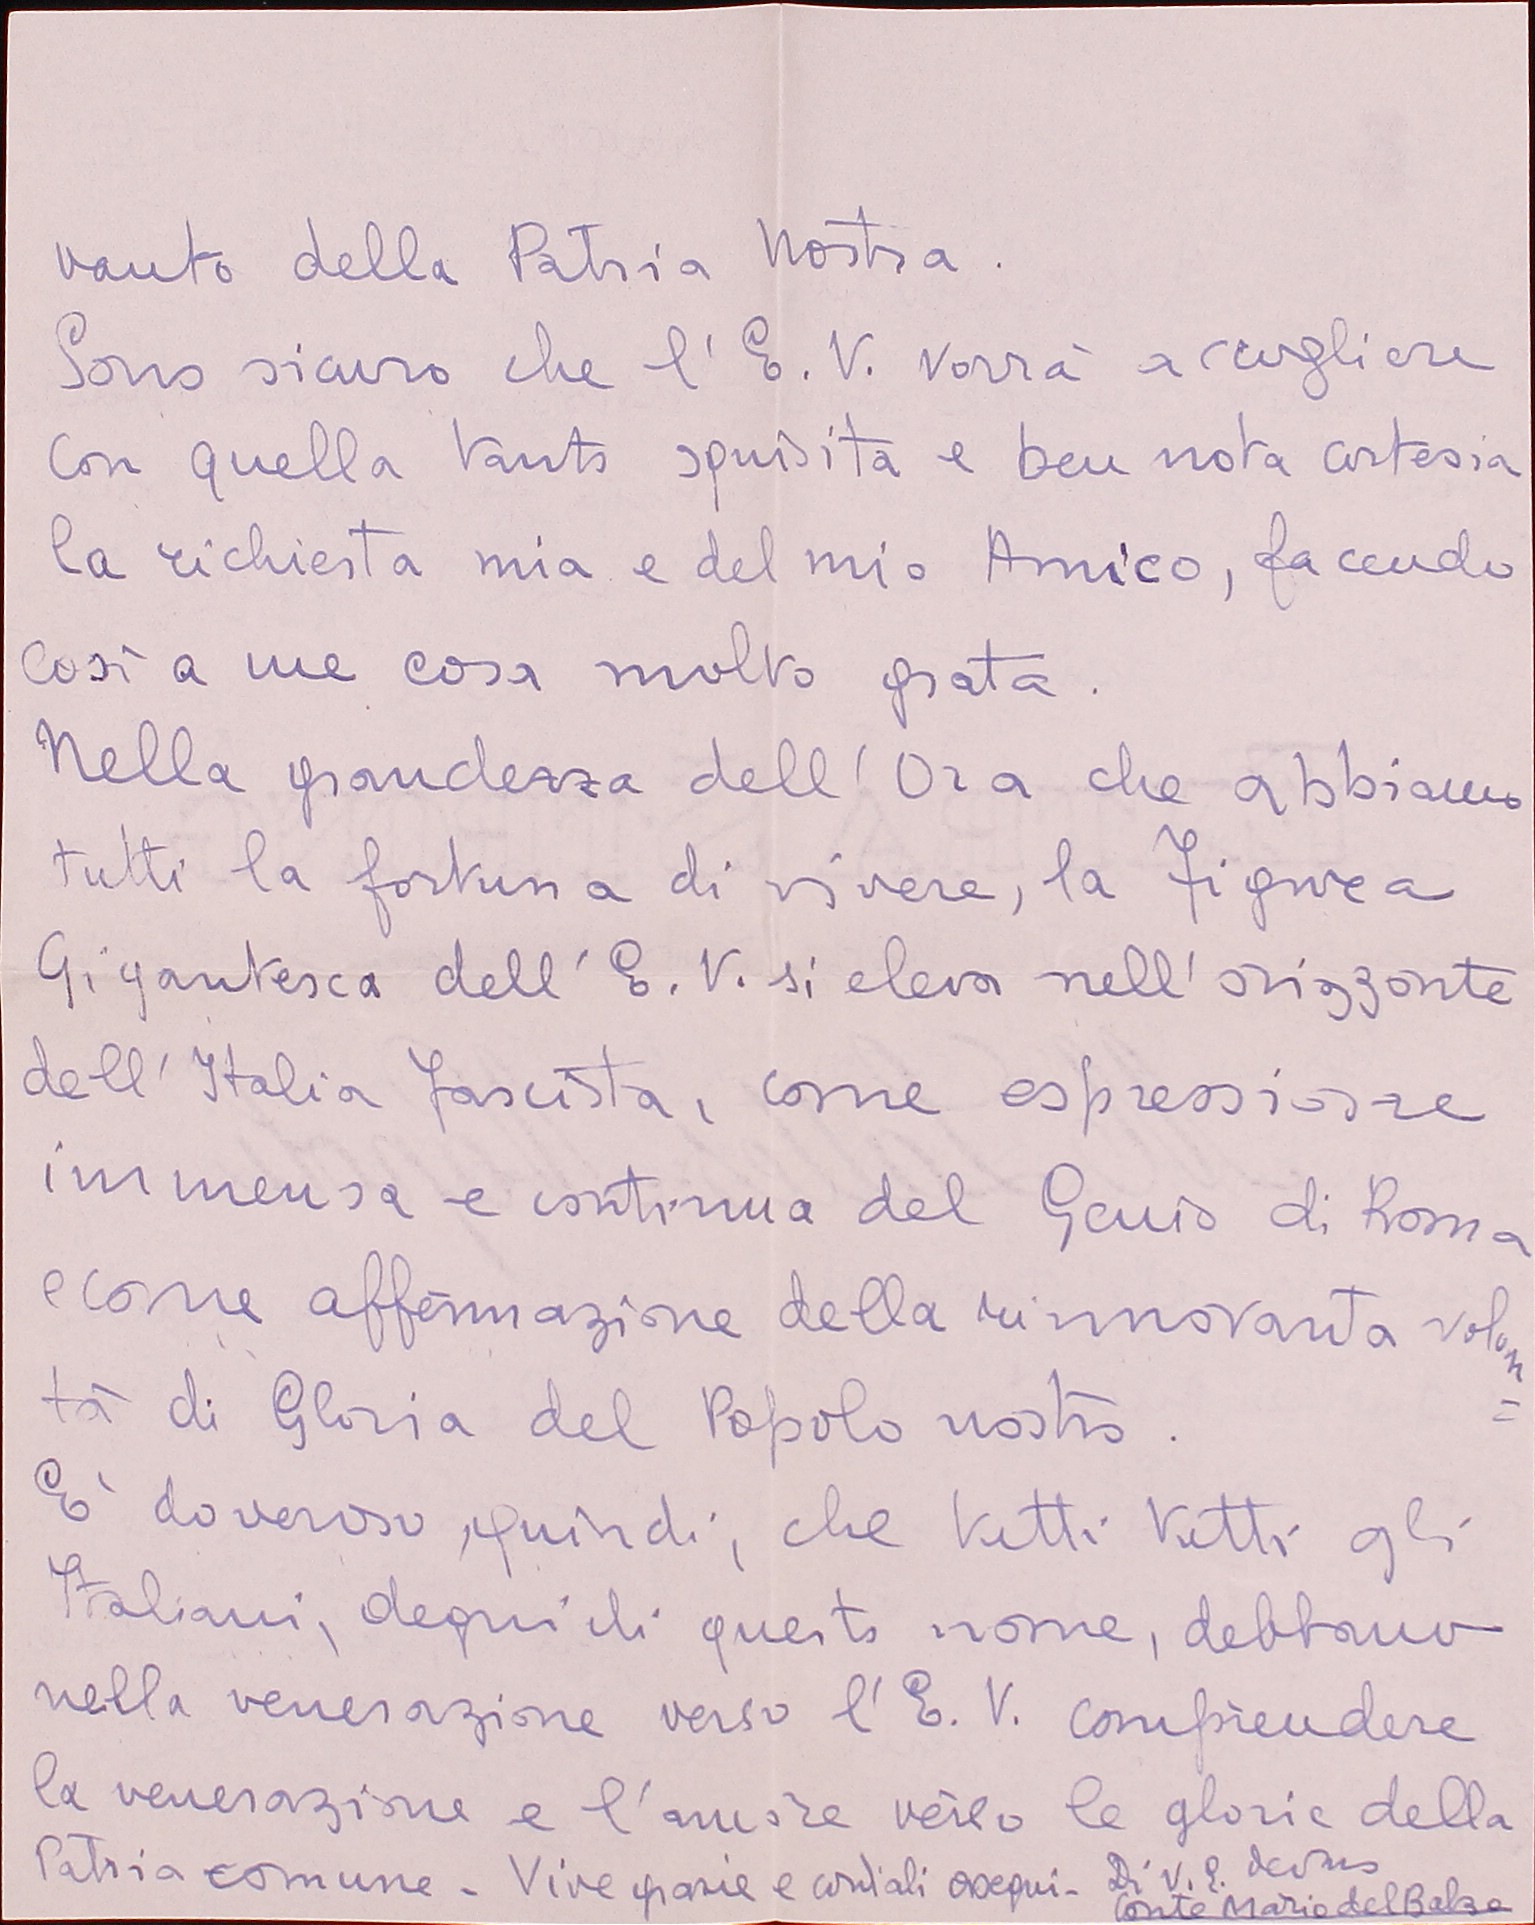 vanto della Patria Nostra.
Sono sicuro che l'E. V. vorrà accogliere
con quella tanto squisita e ben nota cortesia
la richiesta mia e del mio Amico, facendo
così a me cosa molto grata.
Nella grandezza dell'Ora che abbiamo
tutti la fortuna di vivere, la Figura
Gigantesca dell'E. V. si eleva nell'orizzonte
dell'Italia Fascista, come espressione
immensa e continua del Genio di Roma
e come affermazione della rinnovanta volon=
tà di Gloria del Popolo nostro.
E' doveroso, quindi, che tutti tutti gli
Italiani, degni di questo nome, debbano
nella venerazione verso l'E. V. comprendere
la venerazione e l'amore verso le glorie della
Patria comune - Vive grazie e cordiali ossequi - Di V. E. devmo
Conte Mario del Balzo